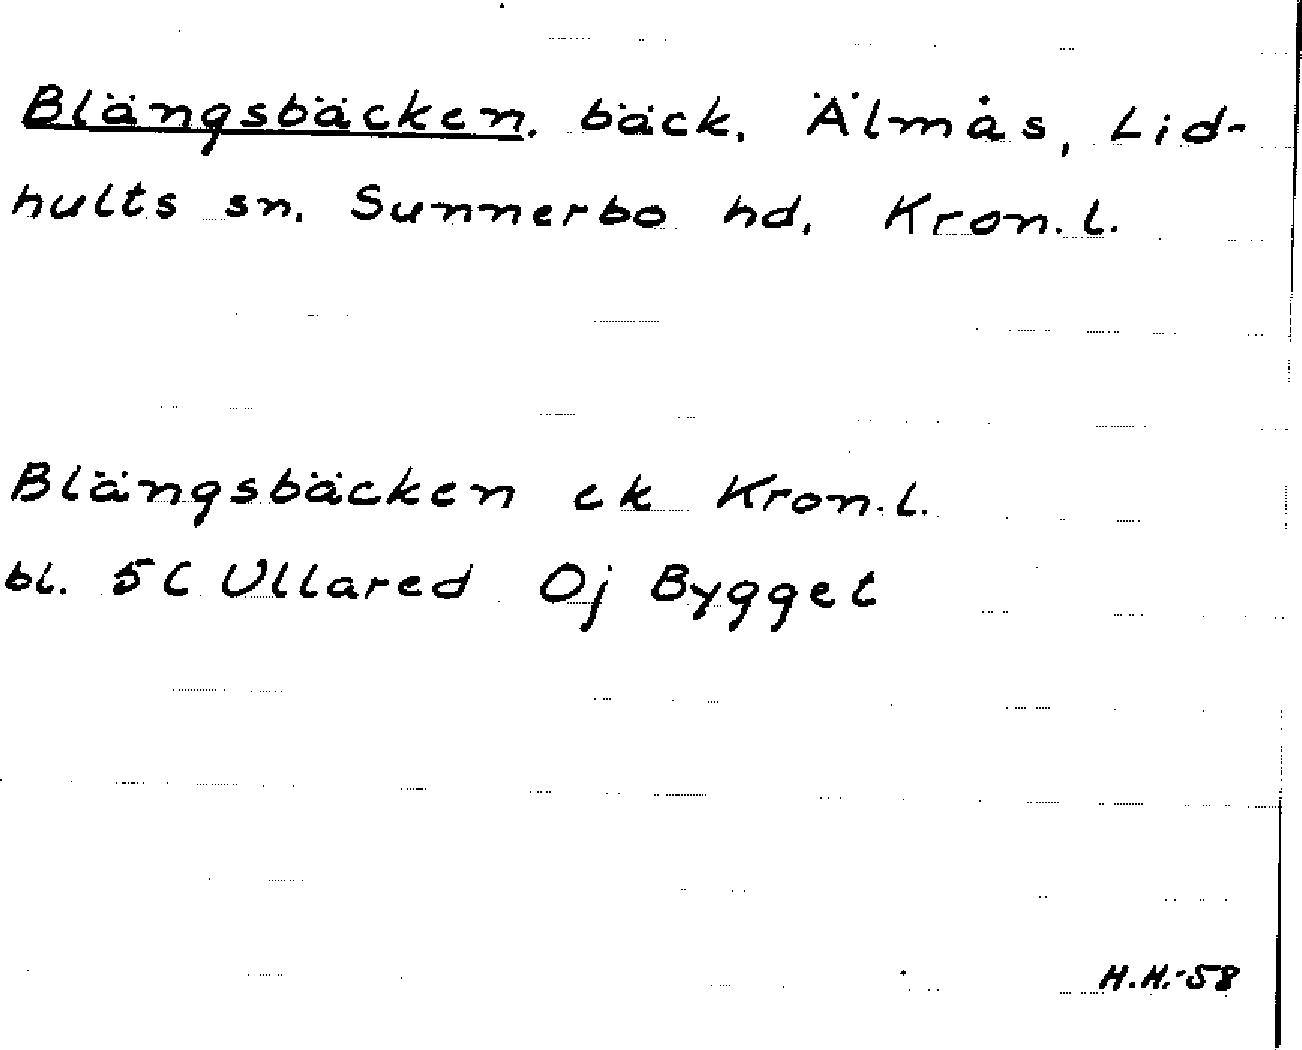 Blängsbäcken. bäck. Älmås, Lid-
hults sn. Sunnerbo hd. Kron. l.
Blängsbäcken ek Kron. l.
bl. 5C Ullared Oj Bygget
H.H.-58